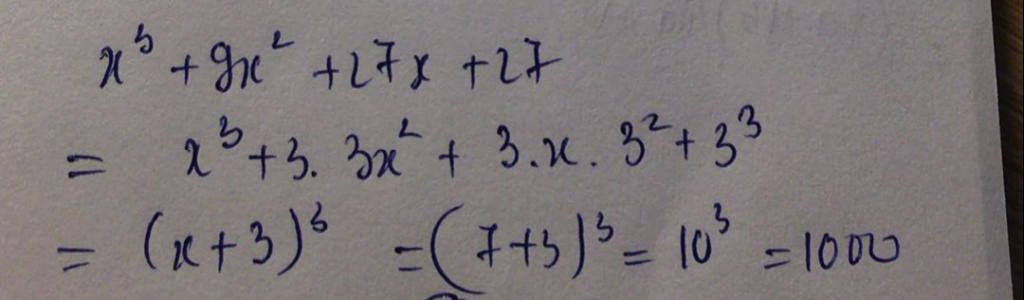 x³ + 9x² + 27x + 27
= x³ + 3. 3x² + 3.x. 3² + 3³
= (x + 3)³ = (7+3)³ = 10³ = 1000